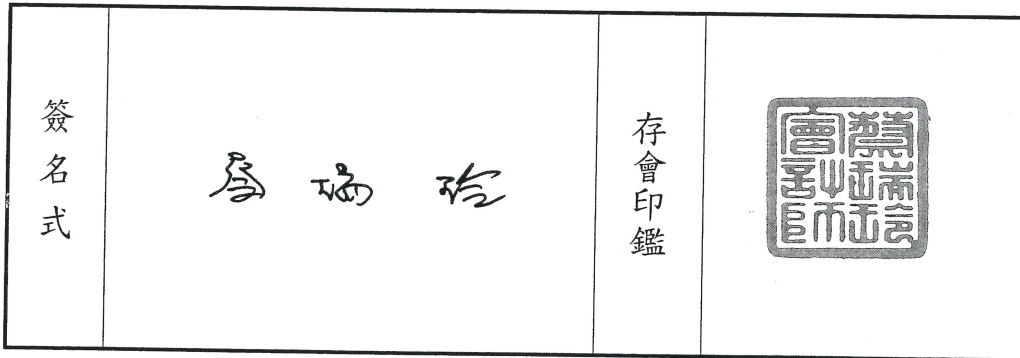 簽名式
瑞玲
存會印鑑
瑞玲
會計師